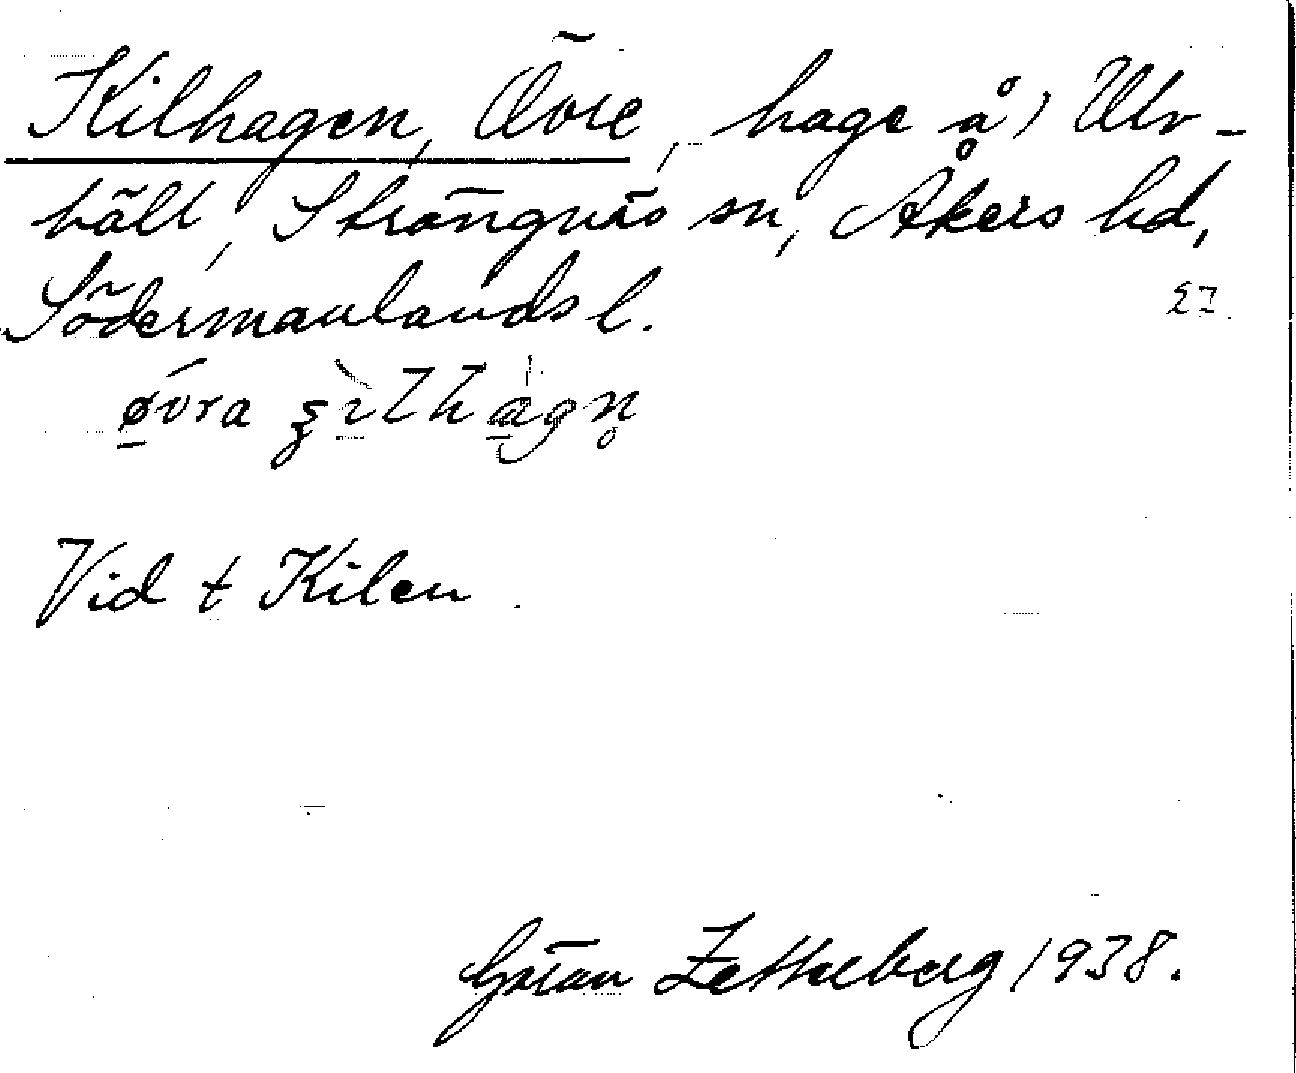 Kilhagen, Övre, hage å) Ulv-
häll, Strängnäs sn, Åkers hd,
Södermanlands l.
27
Vid t Kilen.
Göran Zetterberg 1938.